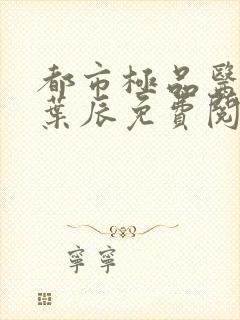 都市極品醫
葉辰免費閱
寧寧